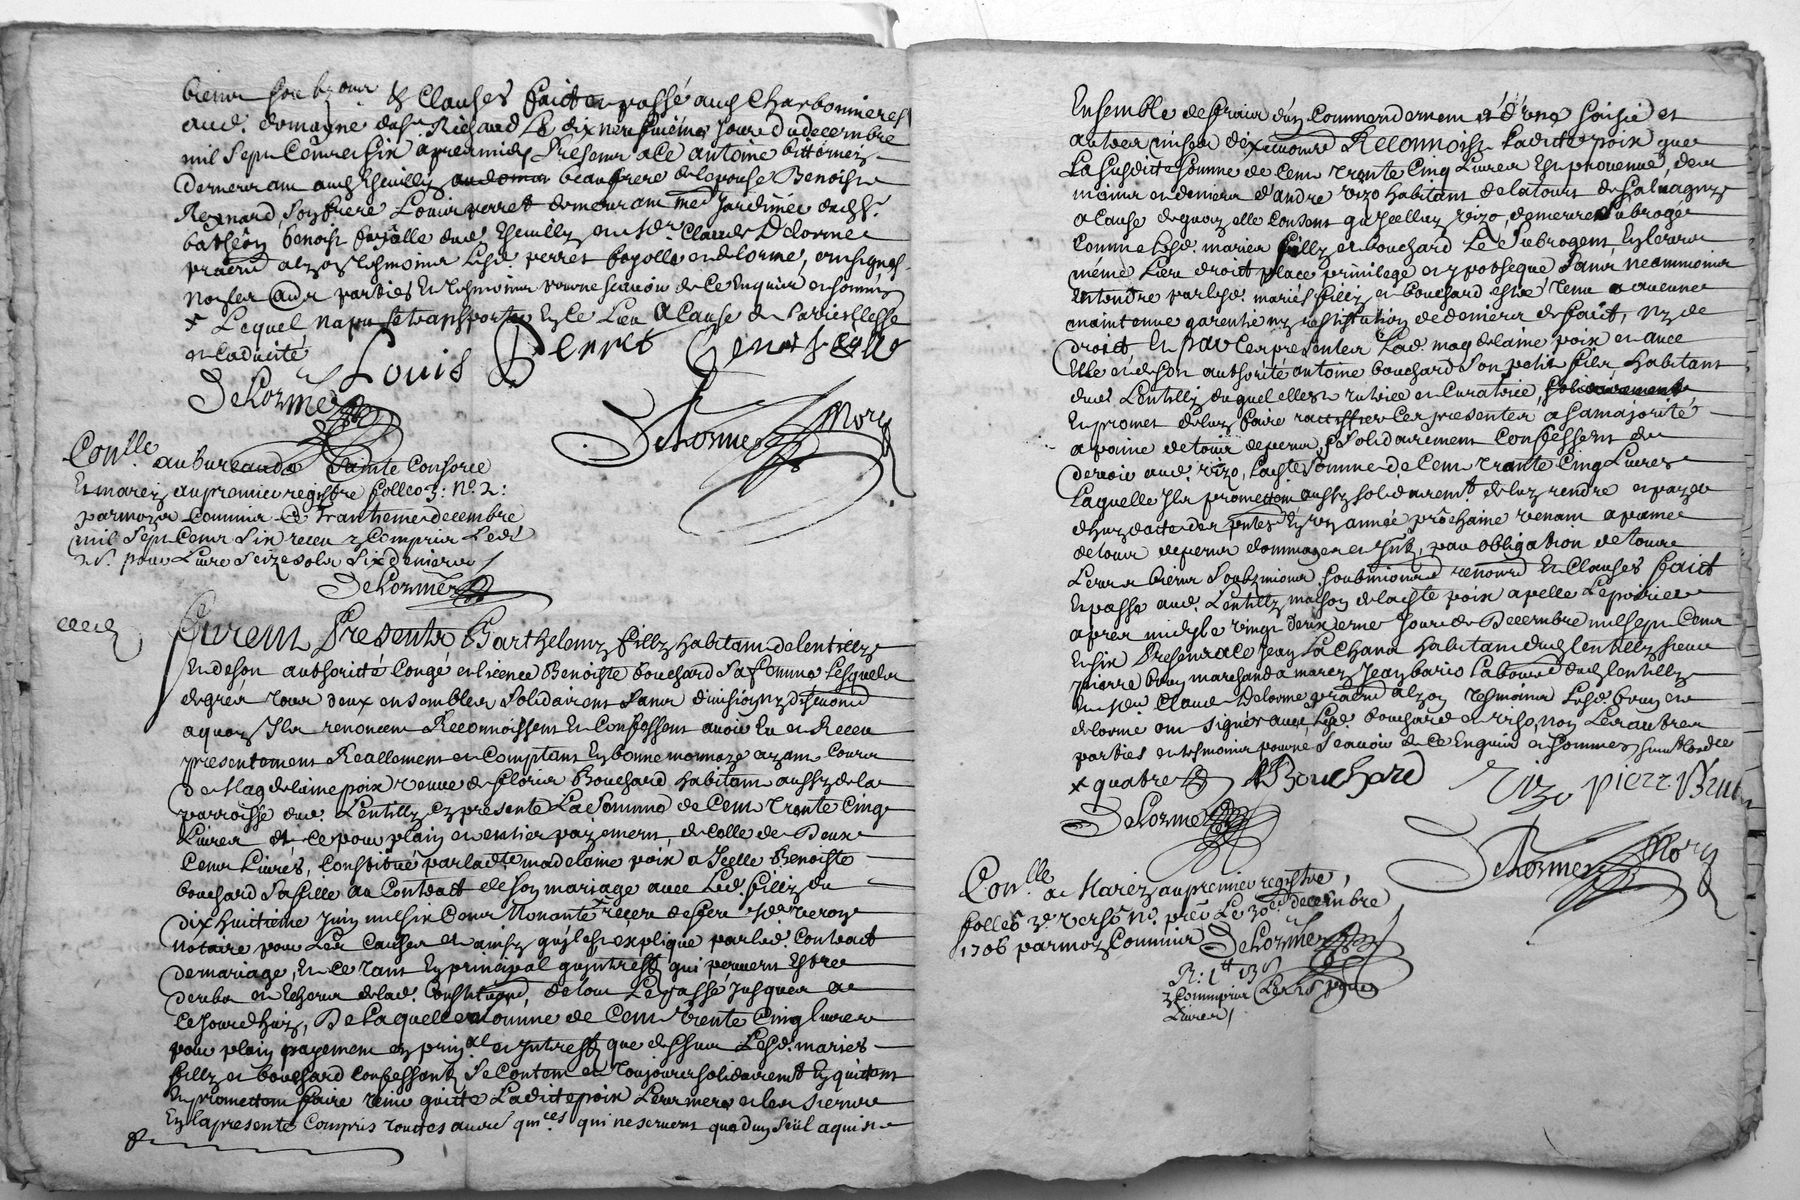 biens soubz aux & Clauses faict et passé aud Charbonnieres
aud. domayne dud sr. Richaud Le dix neufuieme Jour du decembre
mil Sept Centz et six apres midy Presents a Ce antoine
demeurant aud Escuilly beaufrere de lepouse Benoiste
Reynard, Son frere Louis perret demeurant me Jardinier dud Sr.
benoist fayolle dud Escuilly et Sr. Claude Delorme
praticien alzoy tesmoins Lesd perret fayolle et delorme, ont signés
non les autres parties et tesmoins pour ne scauoir de Ce Enquis et sommés
x Lequel na pu se transporter En Ce Lieu a Cause de sa vieillesse
et Caducité
Louis Perret Benoist fayolle
Delorme
Delorme Nore
Conlle au bureau de Sainte Consorce
Et marcy au premier registre folleo 3: No. 2:
par moy Commis Ce Trantieme decembre
mil Sept Cents Six receu y Compris Led
pour Livre Seize sols Six deniers
Delorme
Furent Presents Barthelemy filly habitant de lentilly
Et de son authorité Congé et licence Benoiste bouchard Sa femme Lesquels
de gres tous deux ensembles Solidairemt Sans diuision ny discution
a quoy Ils renoncent Reconnoissent Et Confessent auoir Eu et Receu
presentement Reallement et Comptant En bonne monnoye ayant Cours
De Magdelaine poix veuue de fleuris Bouchard habitant aussy de la
parroisse dud. Lentilly Cy presente La Somme de Cent Trente Cinq
Liures et ce pour plain et entier payement de Celle de Deux
Cents Liures, Constitué par ladte madelaine poix a Icelle Benoiste
bouchard Sa fille au Contract de Son mariage auec Led. filly du
dix huitieme Juin mil six Cents Nonante x receu de feu Me veron
Notaire pour Les Causes et ainsy quil est expliqué par led. Contract
de mariage, Et Ce Tant En principal quintrest qui peuuent Estre
deubs et Escheus de lad. Constituon, de tout Le passé Jusques a
Ce Jourdhuy, De Laquelle somme de Cent Trente Cinq liures
pour plain payement en prinal et Intrest que dessus Lesd. mariés
filly et bouchard Confessants Se Contentent et Toujours solidairemt En quittent
Et promettent faire Tenir quitte Laditte poix Leur mere et les Siens
En la presente Compris Touttes autres quices qui ne seruent que dun Seul aquis
Ensemble des fraix dun Commendement et dune Saisie et
autres mises dexecutoire Reconnoist Laditte poix que
La Susditte Somme de Cent Trente Cinq Liures Est prouenue, des
mains et deniers dandre rizo habitant de la tour de Saluagny
a Cause de quoy elle Consent quIcelluy rizo, demeure Subrogé
Comme Lesd. mariés filly et bouchard Le Subrogent En leurs
méme Lieu droict place priuilege et ypotheque Sans Neammoins
entendre par lesd. mariés filly et bouchard estre Tenu a aucune
maintenue garentie ny restitution de deniers de faict, ny de
droict, Et par Ces presentes Lad. magdelaine poix et auec
Elle et de son authorité antoine bouchard Son petit fils habitant
dud Lentilly duquel elle est tutrice et Curatrice,
Et promet de luy faire rattiffier Ces presentes a Sa majorité
a paine de tous depens, Solidairement Confessent de
deuoir aud. rizo, ladte Somme de Cent Trante Cinq Liures
Laquelle Ils promettent aussy solidairemt de luy rendre et payer
dhuy datte des pntes En Un année prochaine venant a paine
de tous depens dommages et Intz, par obligation de tous
Leurs biens Soubzmissions renonce Et Clauses faict
Et passé aud. Lentilly maison de ladte poix apelle Lepoirier
apres midy le vingt deuxieme Jour de Decembre mil sept Cent
Et Six Presents a Ce Jean La Chana habitant dud lentilly sieur
pierre brun marchand a marcy Jean bario Laboureur dud lentilly
et Me Claude Delorme praticien alzoy tesmoins Lesd. brun et
delorme ont signés auec Led. bouchard et riso, non Les autres
parties et tesmoins pour ne Scauoir de Ce Enquis et sommés
x quatre ABouchard Rizo pierre Brun
Delorme
Delorme Nore
Conlle a Marcy au premier registre,
folleo 3e verso No. pre Le 30e decembre
1706 par moy Commis Delorme
R: 1tt 13s
y Compris Les
Liures